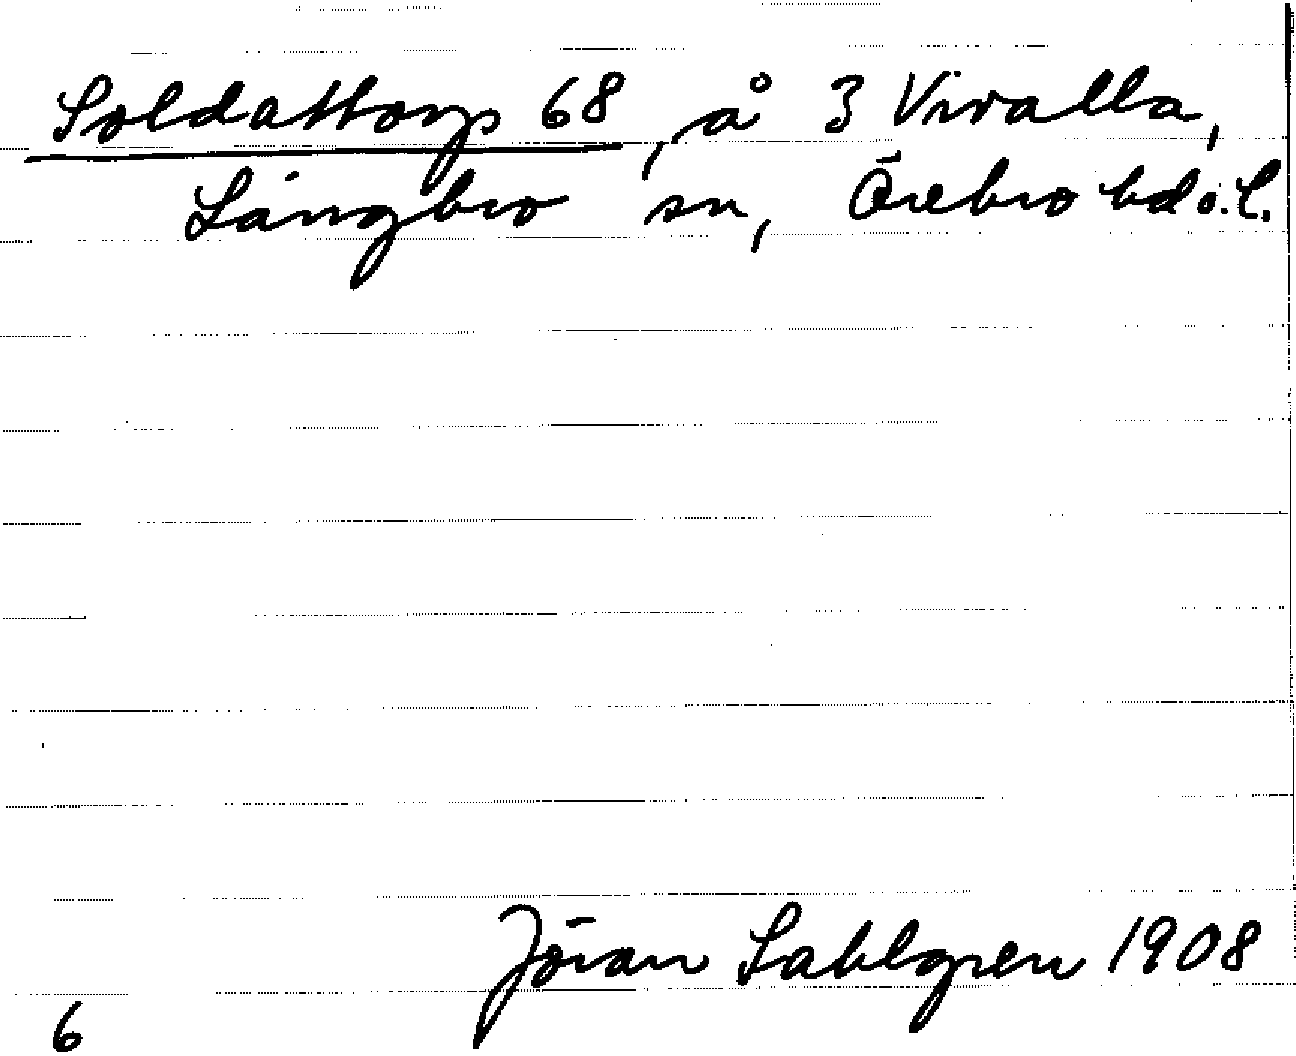 Soldattorp 68, å 3 Vivalla,
Långbro sn, Örebro hd o. l.
Jöran Sahlgren 1908
6